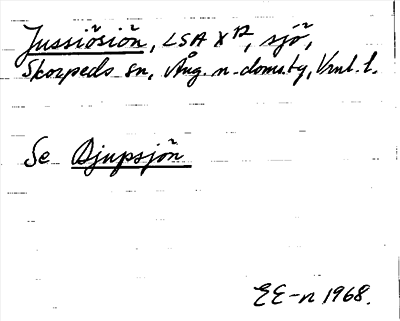 Jussiösiön, LSA X 12, sjö,
Skorpeds sn, Ång. n. doms. tg, Vrnl. l.
Se Djupsjön
EE-n 1968.